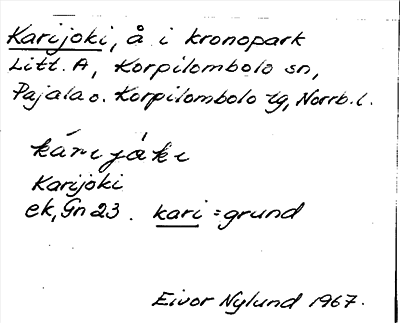 Karijoki, å i kronopark
Litt. A, Korpilombolo sn,
Pajala o. Korpilombolo tg, Norrb. l.
kári jåkı
Karijoki
ek, Gn 23. kari = grund
Eivor Nylund 1967.